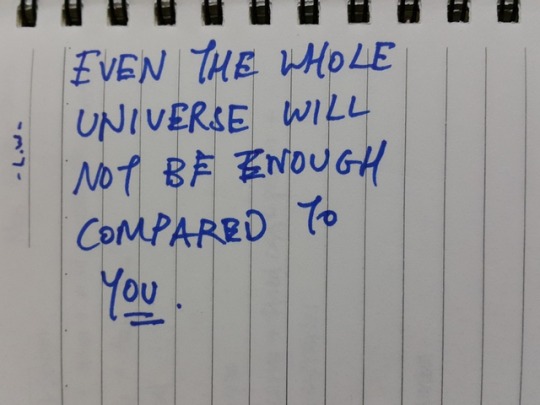 EVEN THE WHOLE
UNIVERSE WILL
NOT BE ENOUGH
COMPARED TO
YOU.
-L.W-